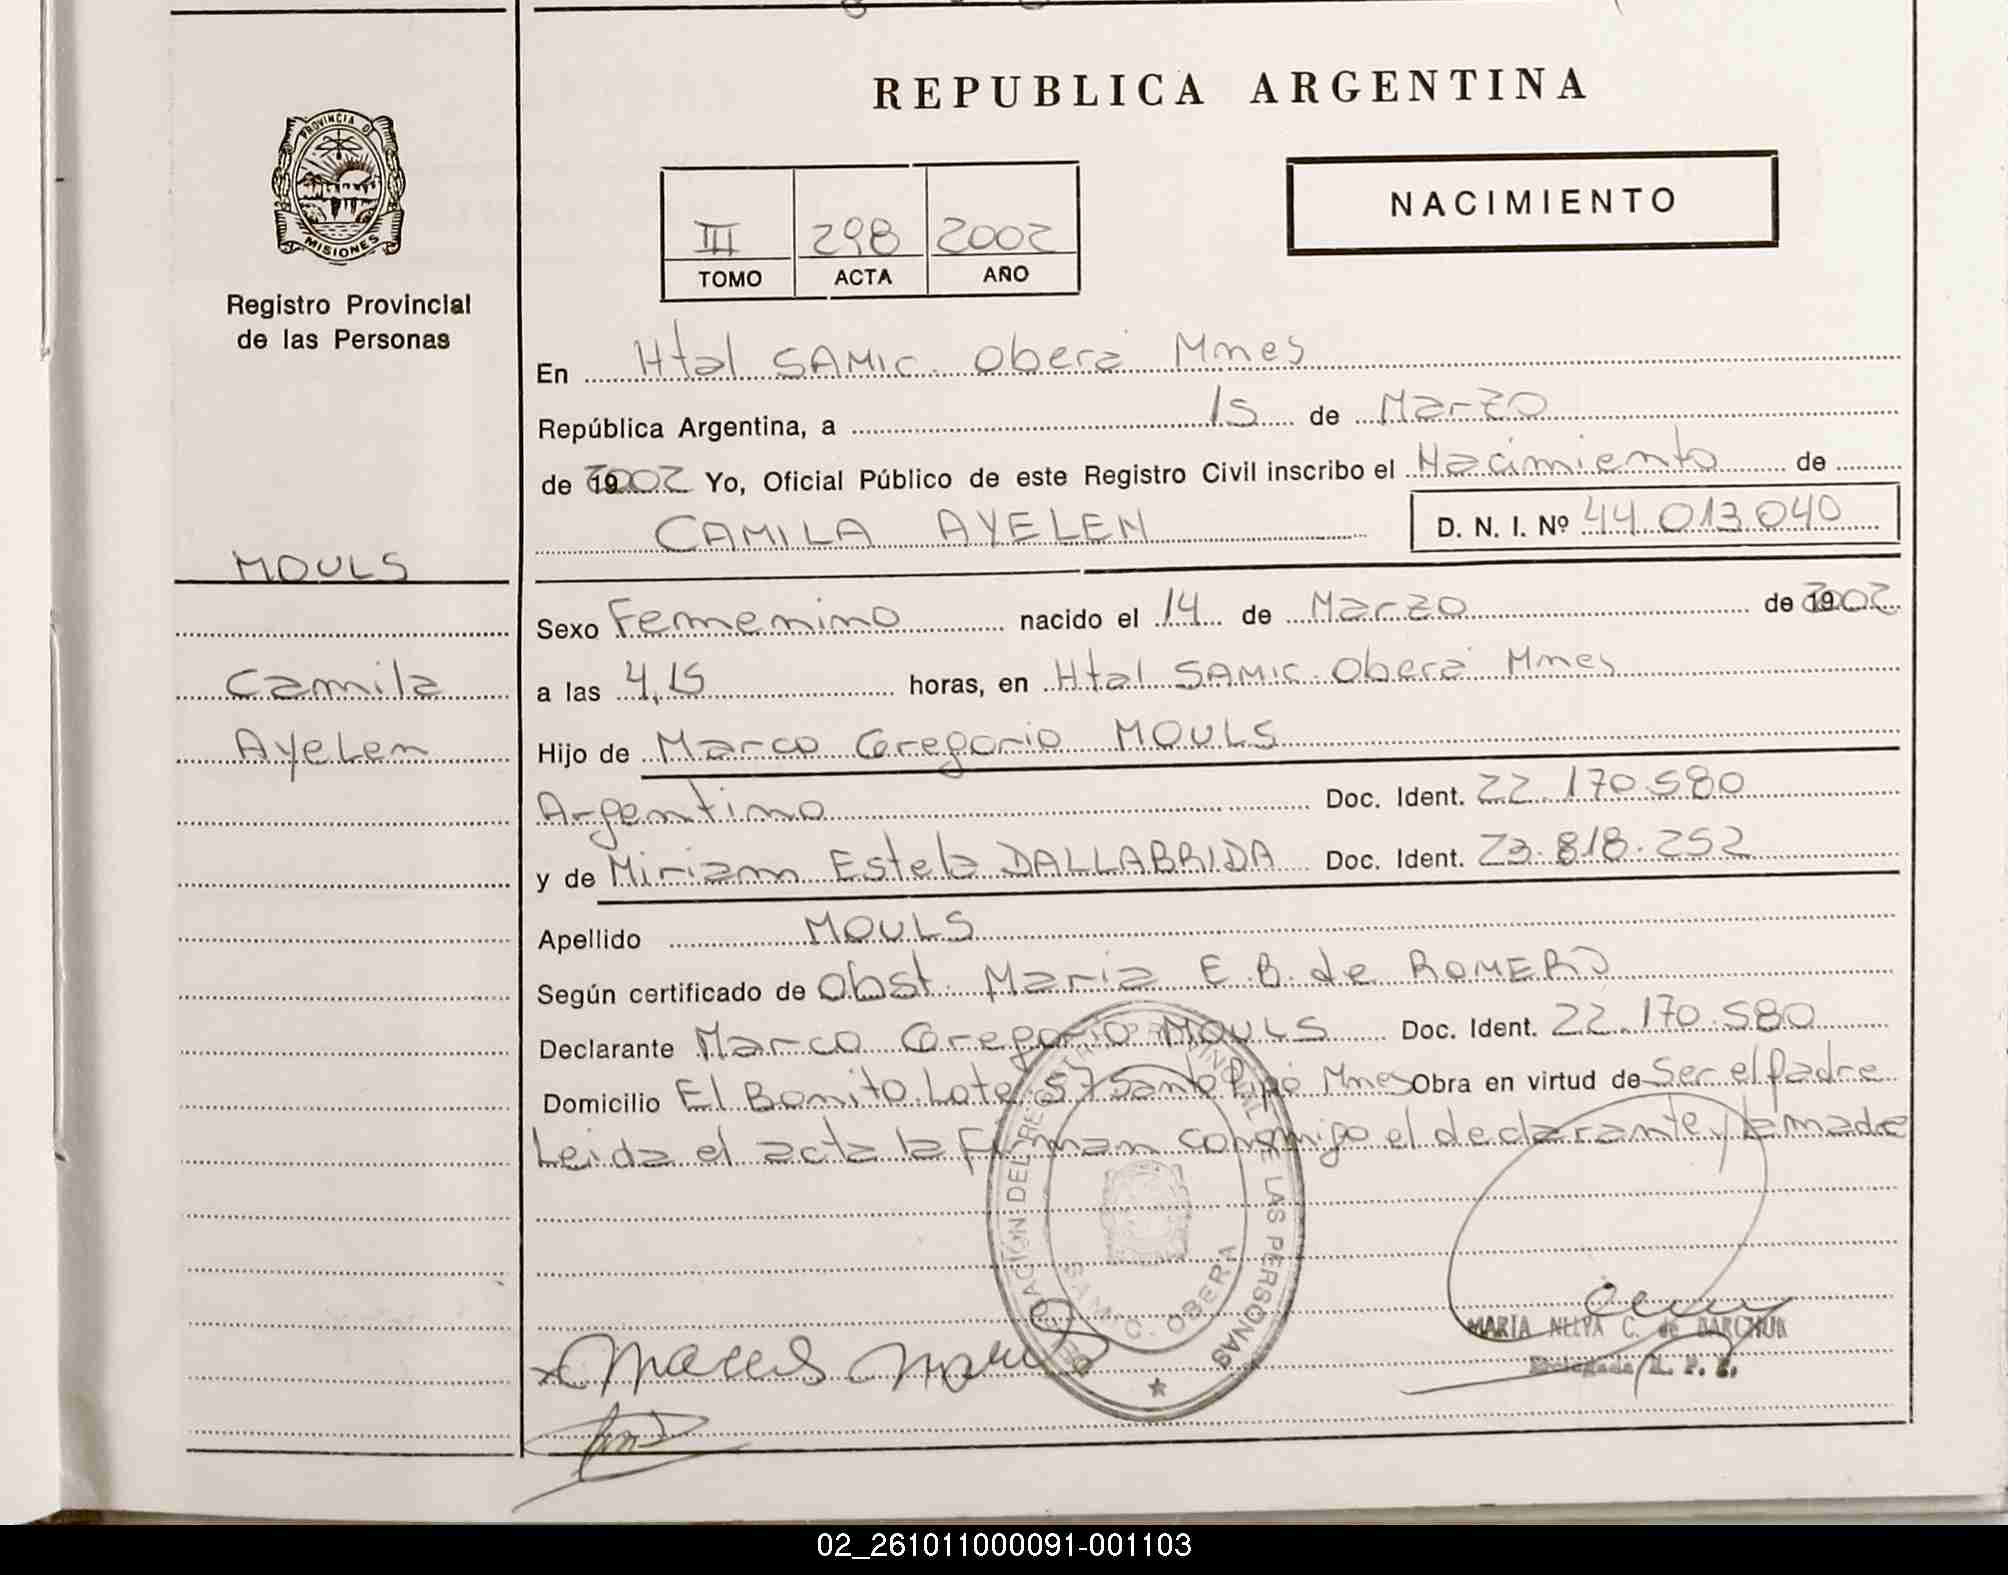 REPUBLICA ARGENTINA
PROVINCIA DE MISIONES
Registro Provincial
de las Personas
NACIMIENTO
III 298 2002
TOMO ACTA AÑO
En Htal SAMIC. Oberá Mnes
República Argentina, a 15 de Marzo
de 2002 Yo, Oficial Público de este Registro Civil inscribo el Nacimiento de
CAMILA AYELEN D. N. I. Nº 44.013.040
MOULS
Camila
Ayelen
Sexo Femenino nacido el 14 de Marzo de 2002
a las 4,15 horas, en Htal SAMIC. Oberá Mnes
Hijo de Marco Gregorio MOULS
Argentino Doc. Ident. 22.170.580
y de Miriam Estela DALLABRIDA Doc. Ident. 23.818.252
Apellido MOULS
Según certificado de Obst. Maria E.B. de ROMERO
Declarante Marco Gregorio MOULS Doc. Ident. 22.170.580
Domicilio El Bonito Lote 57 Santo Pipó Mnes Obra en virtud de Ser el padre
Leida el acta la firman conmigo el declarante y la madre
DELEGACIÓN DEL REGISTRO PROVINCIAL DE LAS PERSONAS
SAMIC. OBERA
MARIA NELVA C. de BARCHUK
Delegada R. P. P.
02_261011000091-001103